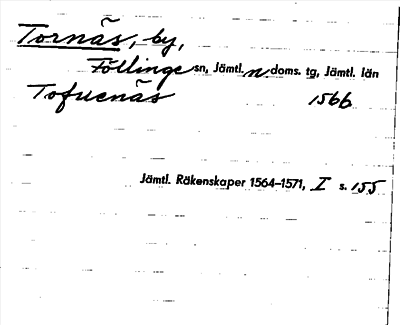 Tornäs, by,
Föllinge sn, Jämtl. n doms. tg, Jämtl. län
Tofuenäs 1566
Jämtl. Räkenskaper 1564–1571, I s. 155